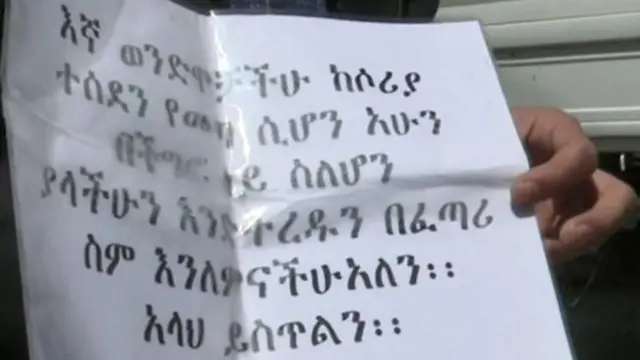 እኛ ወንድሞቻችሁ ከሶሪያ
ተሰደን የመጣን ሲሆን አሁን
በችግር ላይ ስለሆን
ያላችሁን እንድትረዱን በፈጣሪ
ስም እንለምናችሁአለን፡፡
አላህ ይስጥልን፡፡